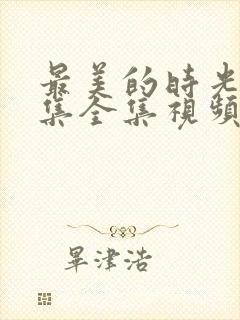 最美的時光
集全集視頻
畢津浩